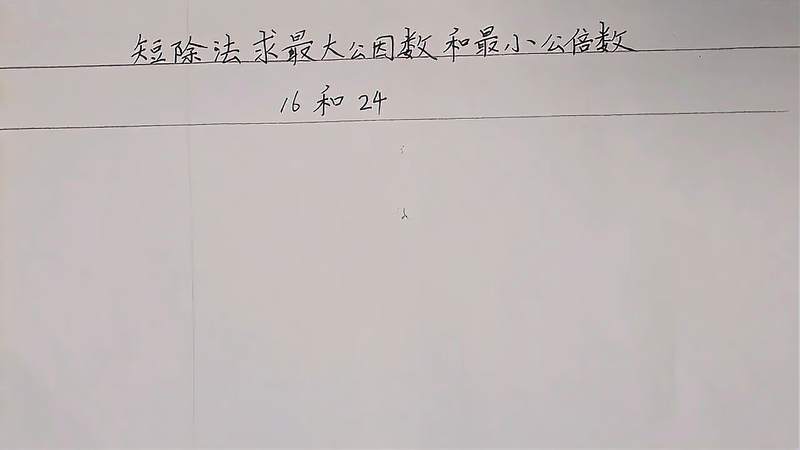 短除法求最大公因数和最小公倍数
16和24